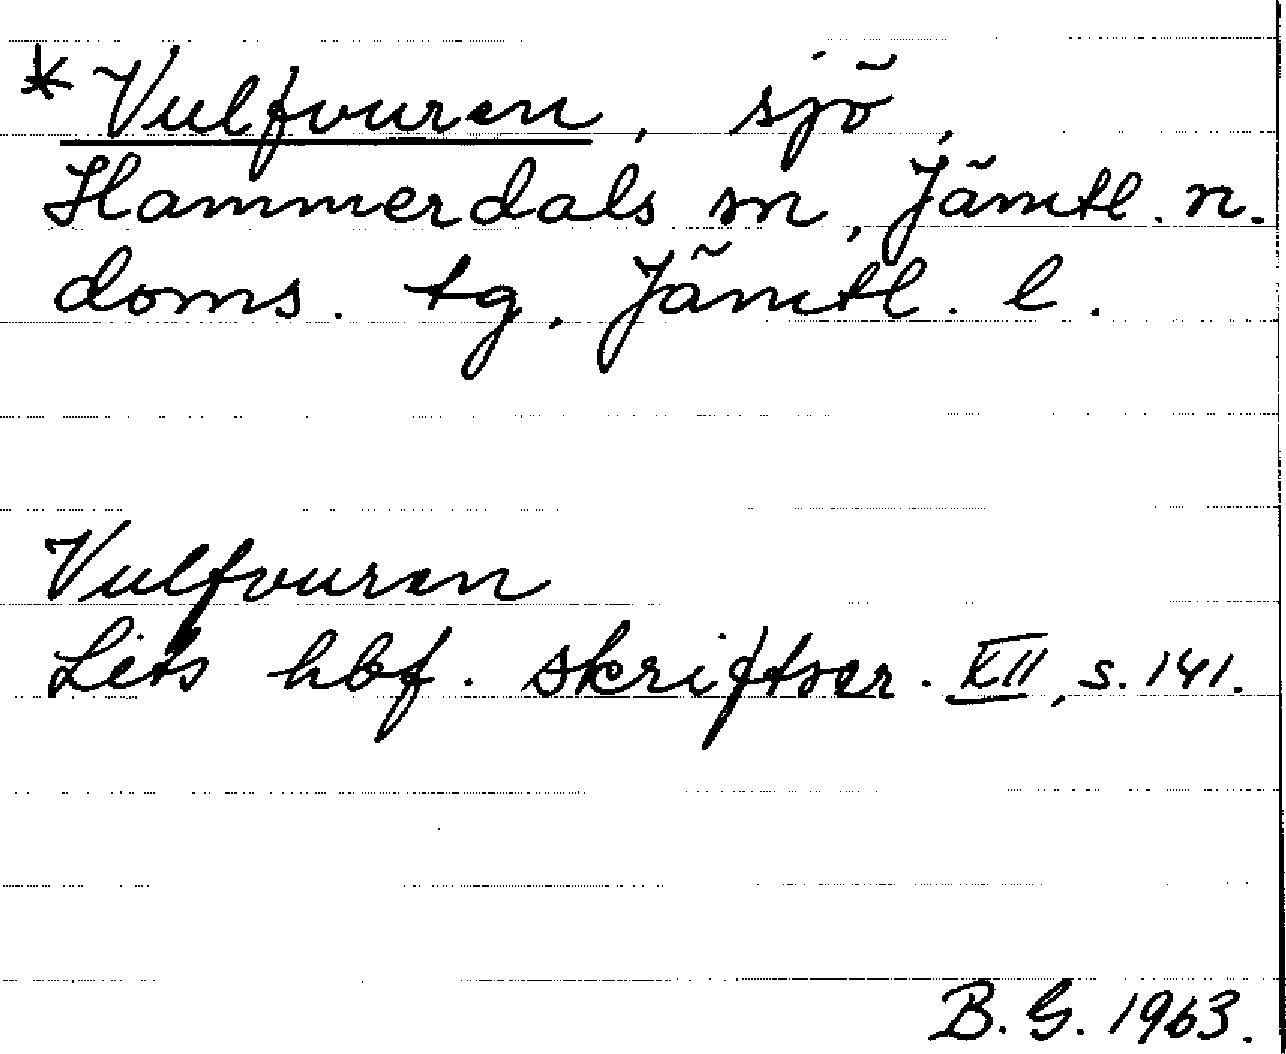 * Vulfvuren, sjö,
Hammerdals sn, Jämtl. n.
doms. tg, Jämtl. l.
Vulfvuren
Lits hbf. skriftser. XII, s. 141.
B. G. 1963.